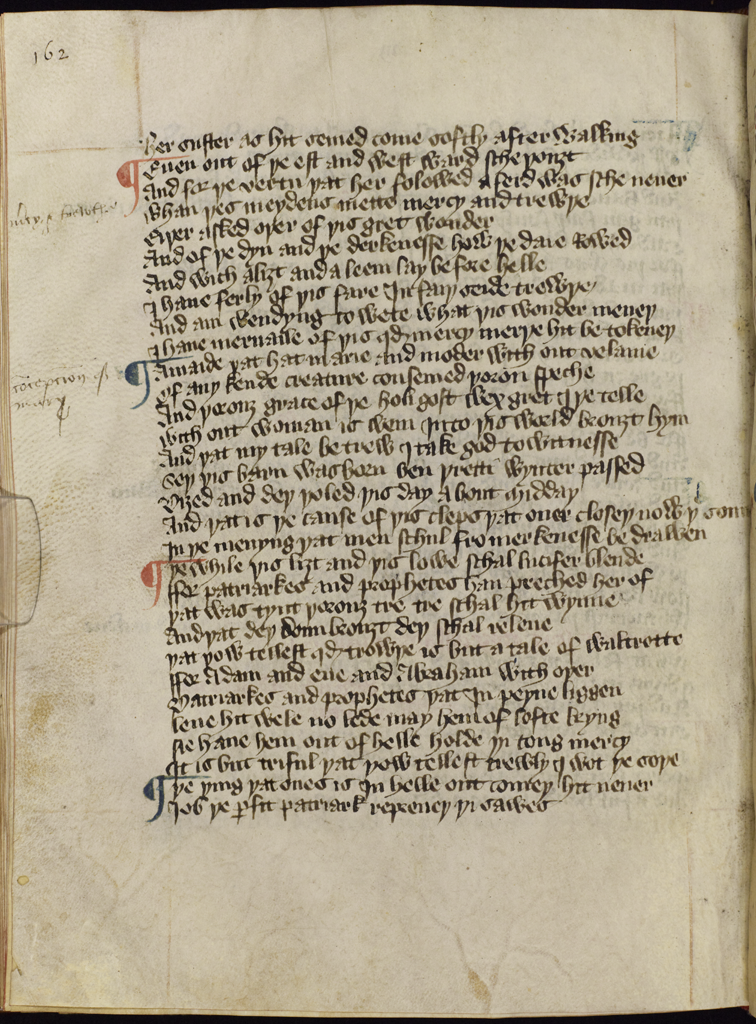 162
Her suster as hit semed come softly after walking
Euen out of þe est and west ward sche þouȝt
And for þe vertu þat her folowed aferd was sche neuer
Whan þes meydens mette mercy and trewþe
Eyþer asked oþer of þis gret wonder
And of þe dyn and þe derkenesse how þe daie rowed
And wich a liȝt and a leem lay before helle
I haue ferly of þis fare In fay seide trewþe
And am wendyng to wete what þis wonder meneþ
I haue meruaile of þis qd mercy merþe hit be tokeneþ
A maide þat hat marie and moder with out velanie
Of any kende creature conseiued þoroȝ speche
And þorouȝ grace of þe holi gost wex gret I ȝe telle
With out woman is wem In to þis world brouȝt hym
And þat my tale be trew I take god to witnesse
Seþ þis barn was born ben þretti wynter passed
Dyed and deþ þoled þis day a bout midday
And þat is þe cause of þis clips þat ouer closeþ now þe sonne
In þe menyng þat men schul fro merkenesse be drawen
Þe while þis liȝt and þis lowe schal lucifer blende
ffor patriarkes and prophetes han preched her of
Þat was tynt þorouȝ tre tre schal hit wynne
And þat deþ doun brouȝt deþ schal releue
Þat þow tellest qd trowþe is but a tale of waltrotte
ffor Adam and eue and Abraham with oþer
Patriarkes and prophetes þat In peyne liggen
Leue hit wele no lede may hem of lofte bryng
Ne haue hem out of helle holde þi tong mercy
It is but triful þat þow tellest trewly I wot þe soþe
Þe þing þat ones is In helle out comeþ hit neuer
Iob þe pfit patriark repreueþ þi sawes